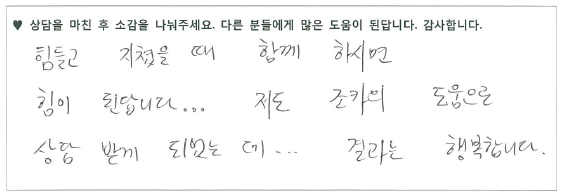 ♥ 상담을 마친 후 소감을 나눠주세요. 다른 분들에게 많은 도움이 된답니다. 감사합니다.
힘들고 지쳤을 때 함께 하시면
힘이 된답니다... 저도 조카의 도움으로
상담 받게 되었는 데... 결과는 행복합니다.